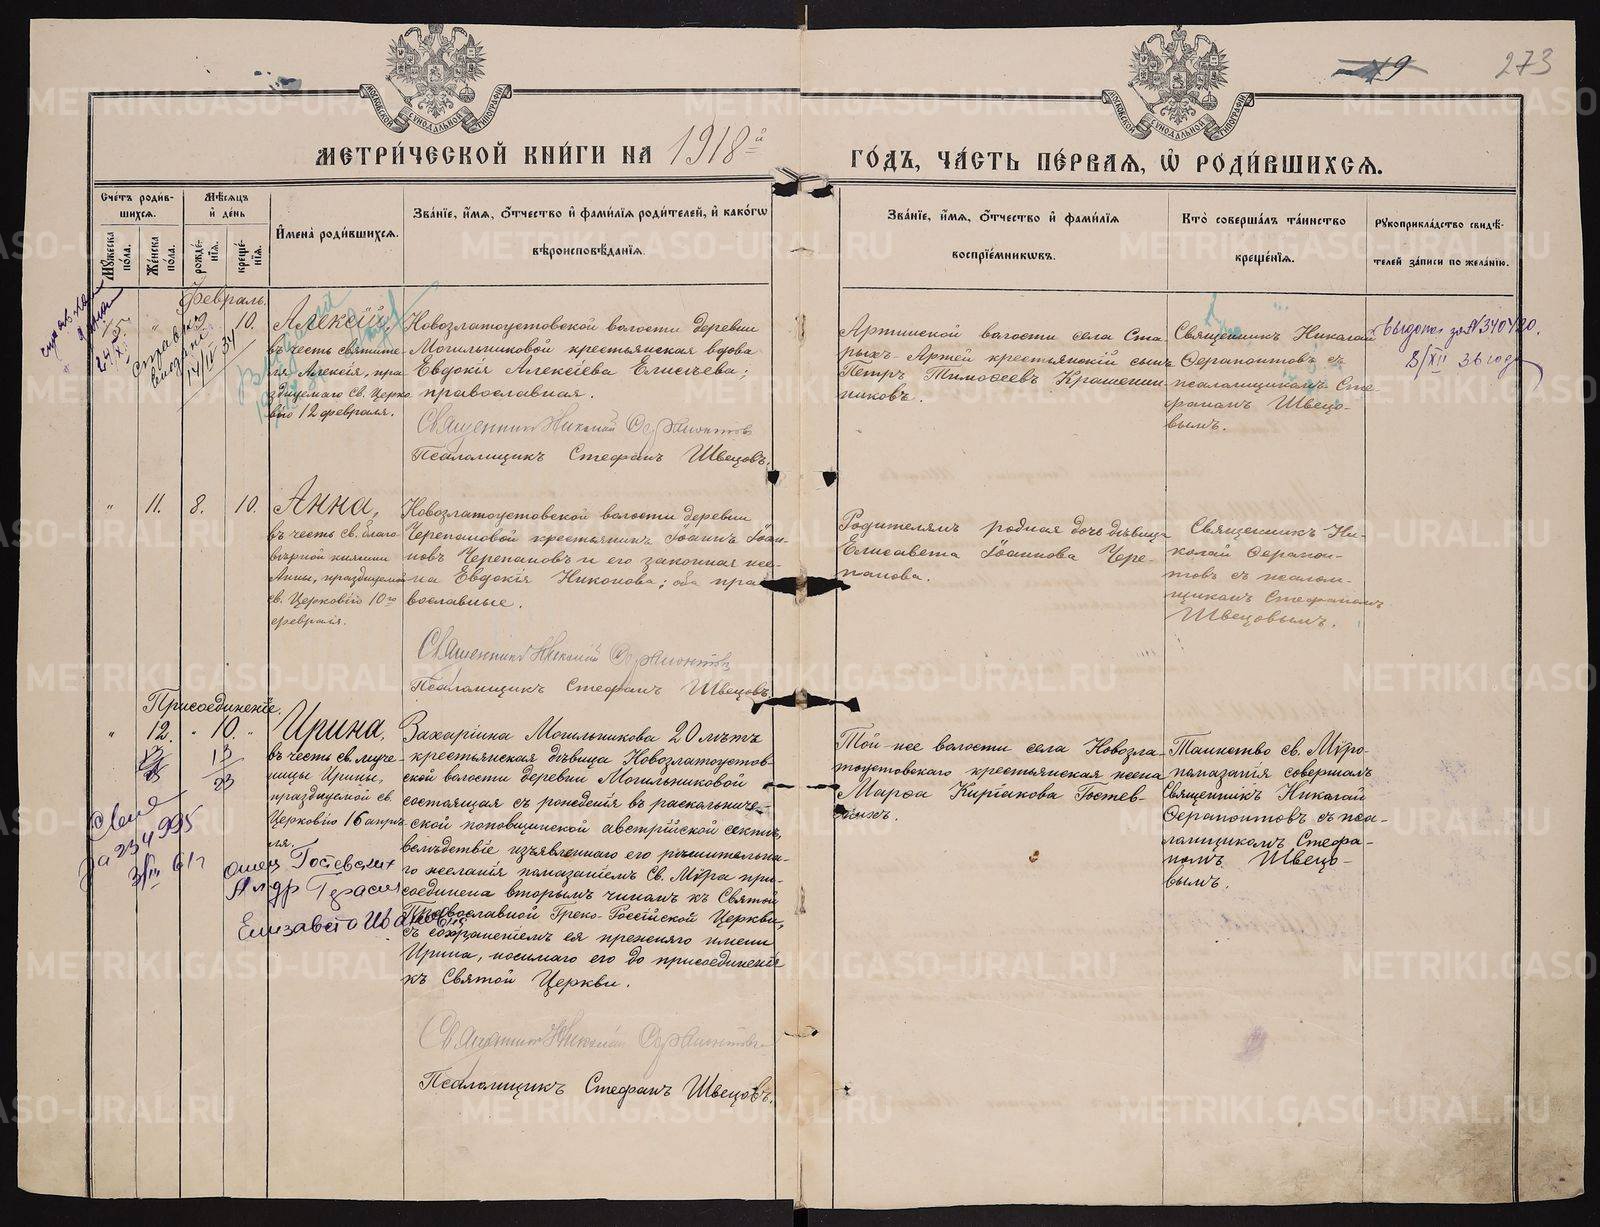 49
273
МОСКОВСКОЙ СУНОДАЛЬНОЙ ТИПОГРАФІИ
МОСКОВСКОЙ СУНОДАЛЬНОЙ ТИПОГРАФІИ
МЕТРИ́ЧЕСКОЙ КНИ́ГИ НА 1918й
ГО́ДЪ, ЧА́СТЬ ПЕ́РВАЯ, Ѡ҆ РОДИ́ВШИХСѦ.
Сче́тъ роди́в-
шихсѧ.
Му́жеска по́ла.
Же́нска по́ла.
Мѣ́сѧцъ
и҆ де́нь
рожде́-
нїѧ.
креще́-
нїѧ.
И҆мена̀ роди́вшихсѧ.
Зва́нїе, и҆́мѧ, о҆́тчество и҆ фами́лїѧ роди́телей, и҆ како́гѡ
вѣроисповѣ́данїѧ.
Зва́нїе, и҆́мѧ, о҆́тчество и҆ фами́лїѧ
воспрїе́мникѡвъ.
Кто̀ соверша́лъ та́инство
креще́нїѧ.
Рꙋкоприкла́дство свидѣ́-
телей за́писи по жела́нїю.
Февраль.
10.
Алексій,
въ честь святите-
ля Алексія, пра-
зднуемаго Св. Церко-
вію 12 февраля.
справка
выдана
14/IV 34
Новозлатоустовской волости деревни
Могильниковой крестьянская вдова
Евдокія Алексіева Елисѣева;
православная.
Священникъ Николай Ферапонтовъ
Псаломщикъ Стефанъ Швецовъ.
Артинской волости села Ста-
рыхъ-Артей крестьянскій сынъ
Петръ Тимоѳеевъ Крашенин-
никовъ.
Священникъ Николай
Ферапонтовъ съ
псаломщикомъ Сте-
фаномъ Швецо-
вымъ.
Выдано за № 3404120.
8/XII 36 года
" 11. 8. 10.
Анна,
въ честь св. благо-
вѣрной княгини
Анны, празднуемой
св. Церковію 10го
февраля.
Новозлатоустовской волости деревни
Черепановой крестьянинъ Іоаннъ Іоан-
новъ Черепановъ и его законная же-
на Евдокія Никонова; оба пра-
вославные.
Священникъ Николай Ферапонтовъ
Псаломщикъ Стефанъ Швецовъ
Родителямъ родная дочь дѣвица
Елисавета Іоаннова Чере-
панова.
Священникъ Ни-
колай Ферапон-
товъ съ псалом-
щикомъ Стефаномъ
Швецовымъ.
Присоединеніе.
" 12. " 10. "
13
23
Ирина,
въ честь св. муче-
ницы Ирины,
празднуемой св.
Церковію 16 апрѣ-
ля.
Захаріина Могильникова 20 лѣтъ
крестьянская дѣвица Новозлатоустов-
ской волости деревни Могильниковой
состоящая съ рожденія въ раскольниче-
ской поповщинской австрійской сектѣ,
вслѣдствіе изъявленнаго его рѣшительна-
го желанія помазаніемъ Св. Мѵра при-
соединена вторымъ чиномъ къ Святой
Православной Греко-Россійской Церкви,
съ сохраненіемъ ея прежняго имени
Ирина, носимаго его до присоединенія
къ Святой Церкви.
Священникъ Николай Ферапонтовъ
Псаломщикъ Стефанъ Швецовъ.
Той-же волости села Новозла-
тоустовскаго крестьянская жена
Марѳа Киріакова Гостев-
скихъ.
Таинство св. Мѵро-
помазанія совершалъ
Священникъ Николай
Ферапонтовъ съ пса-
ломщикомъ Стефа-
номъ Швецо-
вымъ.
за 234995
3/III 61г
отец Гостевских
Алдр Герасим
Елизавета Ивановна
METRIKI.GASO-URAL.RU